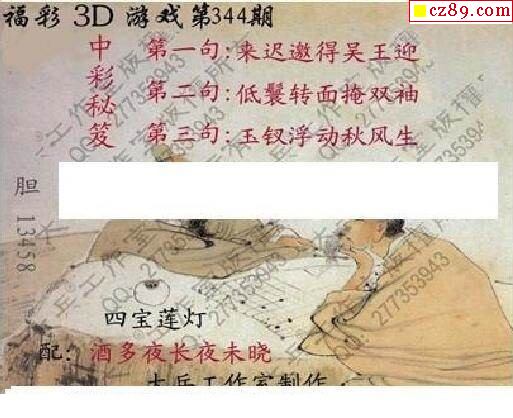 福彩3D游戏第344期
cz89.com
中彩秘笈
第一句:来迟邀得吴王迎
第二句:低鬟转面掩双袖
第三句:玉钗浮动秋风生
胆 13458
四宝莲灯
配: 酒多夜长夜未晓
大兵工作室制作
大兵工作室版权所有
QQ:277353943